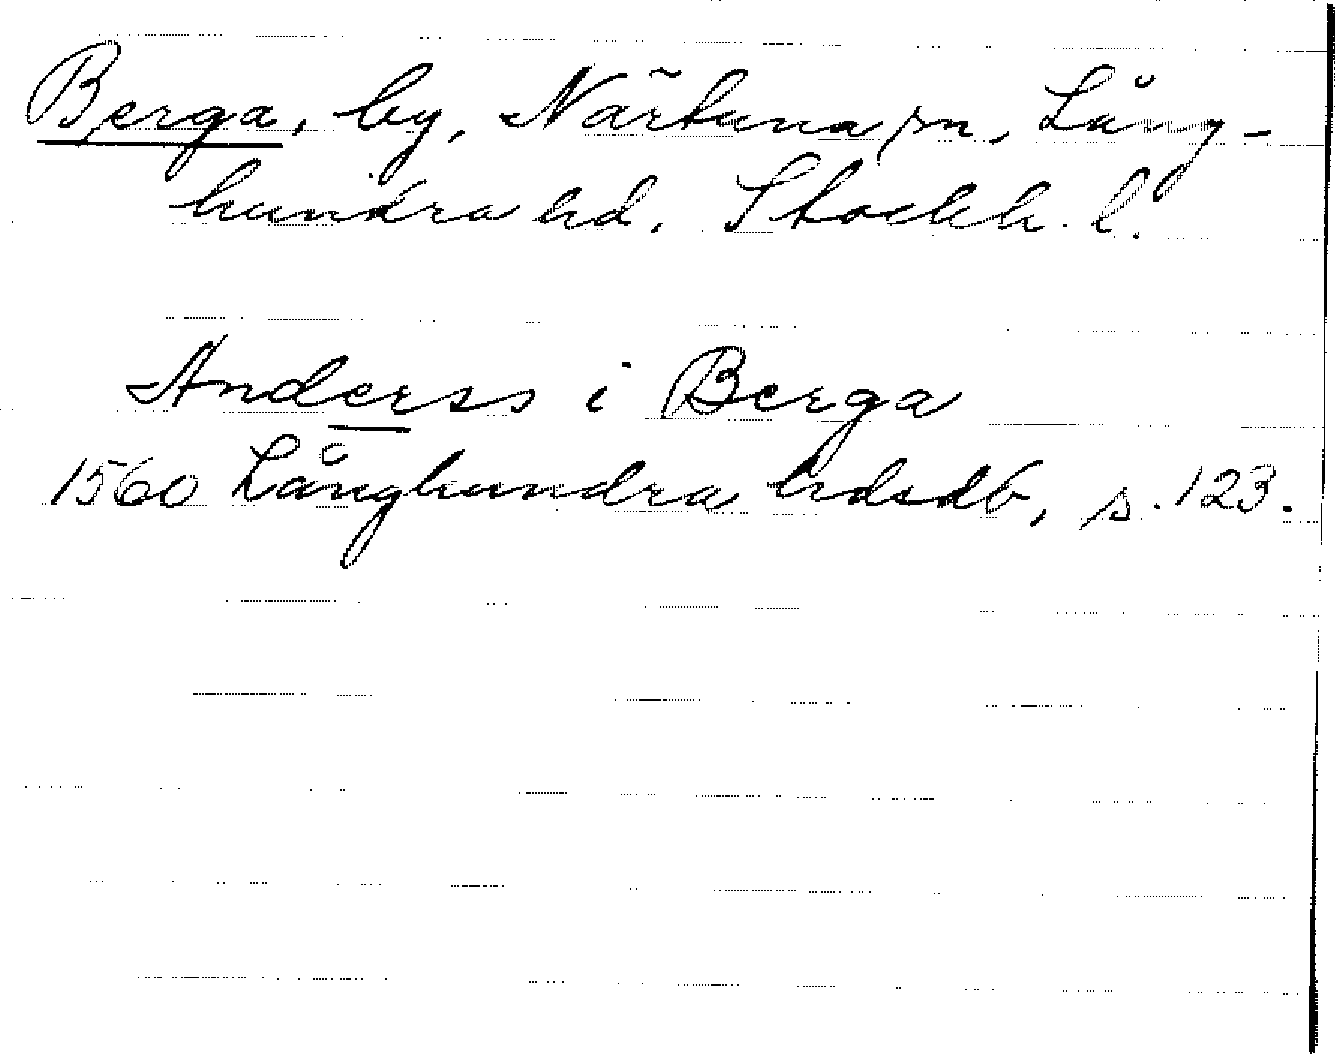 Berga, by, Närtuna sn, Lång-
hundra hd. Stockh. l.
Anderss i Berga
1560 Långhundra hdsdb, s. 123.